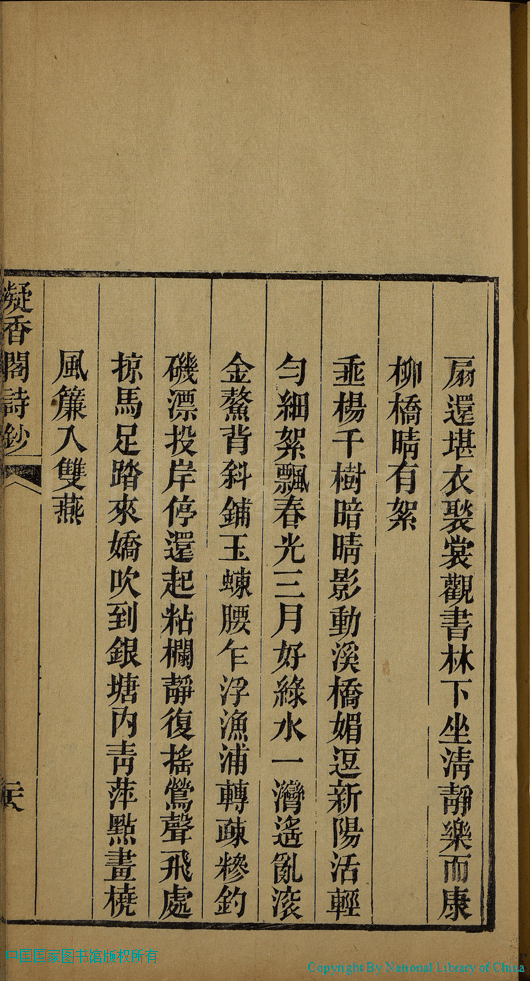 扇還堪衣褧裳觀書林下坐淸靜樂而康
柳橋晴有絮
埀楊千樹暗晴影動溪橋媚逗新陽活輕
勻細絮飄春光三月好綠水一灣遙亂滚
金鰲背斜鋪玉蝀腰乍浮漁浦轉疎糝釣
磯漂投岸停還起粘欄靜復搖鶯聲飛處
掠馬足踏來嬌吹到銀塘內靑萍點畫橈
風簾入雙燕
凝香閣詩鈔
二六
中国国家图书馆版权所有
Copyright By National Library of China